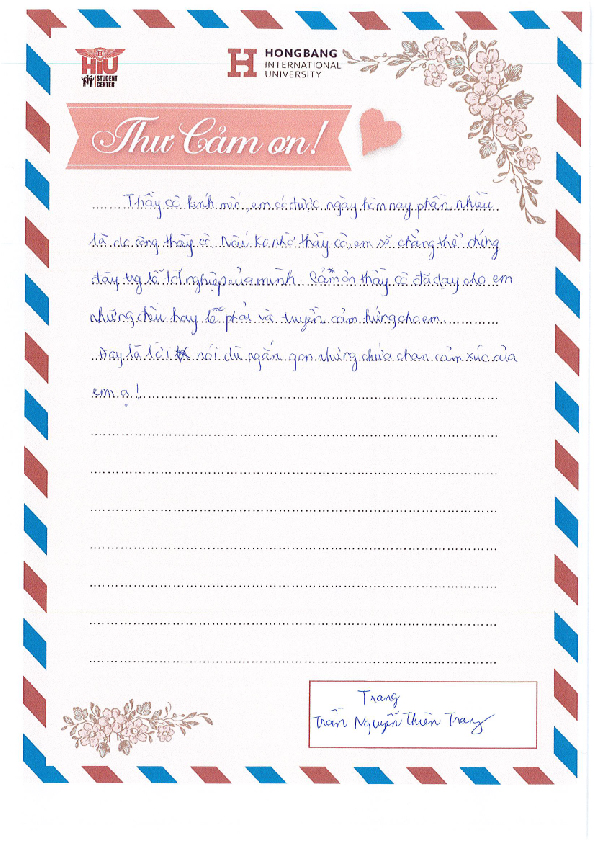 HIU
STUDENT
CENTER
HONGBANG
INTERNATIONAL
UNIVERSITY
Thư Cảm ơn!
Thầy cô kính mến, em có được ngày hôm nay phần nhiều
là do công thầy cô. Nếu ko nhờ thầy cô em sẽ chẳng thể đứng
đây tốt nghiệp của mình. Cảm ơn thầy cô đã dạy cho em
những điều hay lẽ phải và truyền cảm hứng cho em
Đây là lời nói dù ngắn gọn nhưng chứa chan cảm xúc của
em ạ!
Trang
Trần Nguyễn Thiên Trang